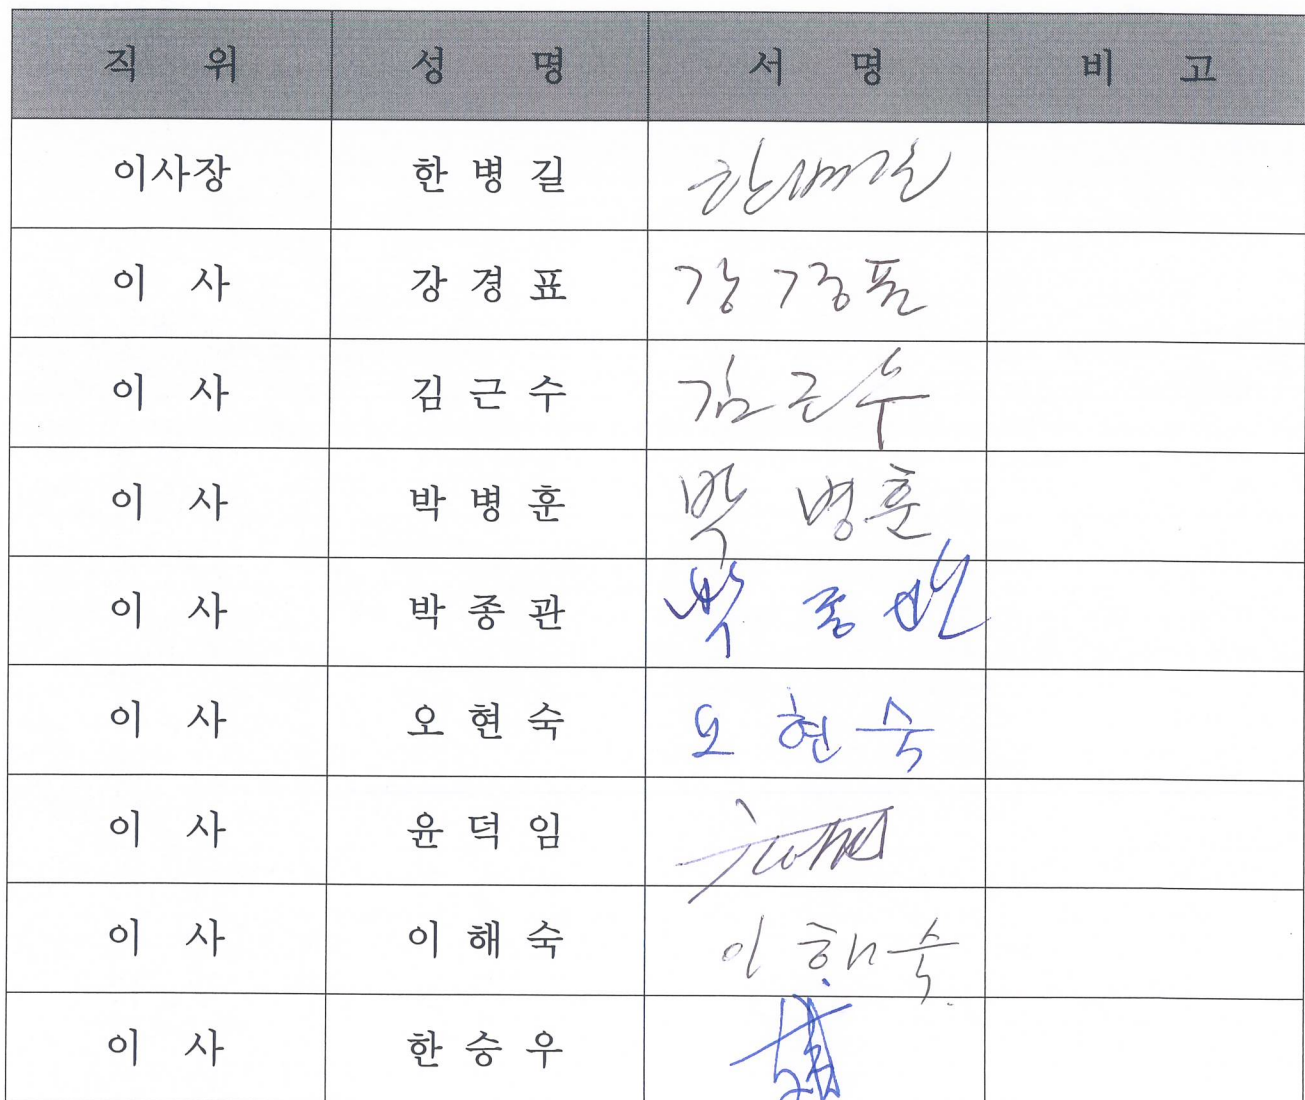 직 위 성 명 서 명 비 고
이사장 한 병 길 한병길
이 사 강 경 표 강경표
이 사 김 근 수 김근수
이 사 박 병 훈 박 병훈
이 사 박 종 관 박 종관
이 사 오 현 숙 오 현숙
이 사 윤 덕 임
이 사 이 해 숙 이 해숙
이 사 한 승 우